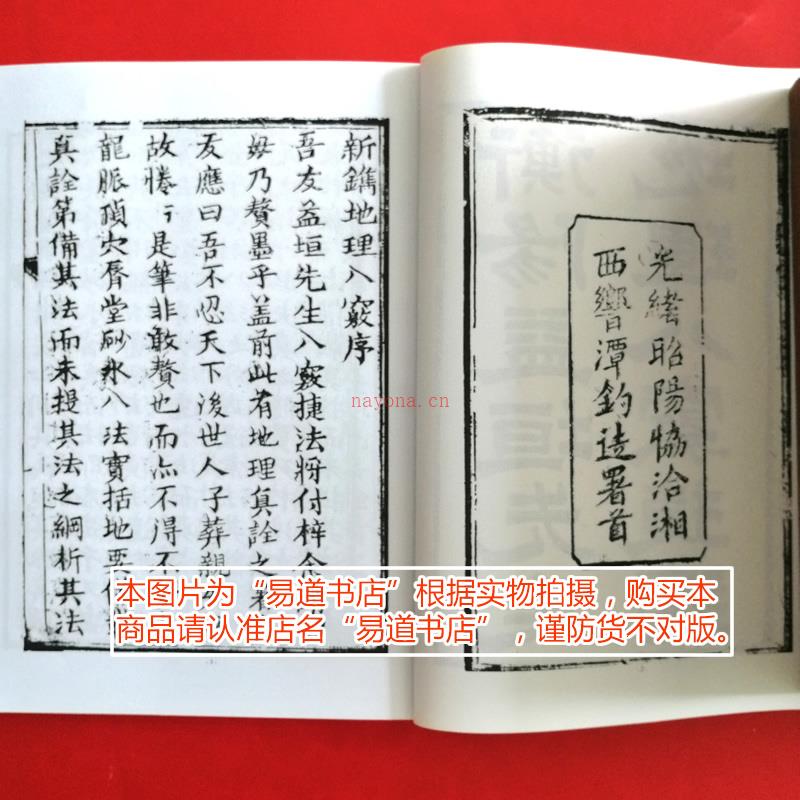 光緒昭陽協洽湘
西響潭釣迻署首
新鐫地理八竅序
吾友益垣先生八竅捷法將付梓余
毋乃贅墨乎蓋前此有地理真詮之
友應曰吾不忍天下後世人子葬親
故惓〻是筆非敢贅也而亦不得不
龍脈頂穴唇堂砂水八法實括地要
真詮第備其法而未提其法之綱析其法
nayona.cn
本图片为“易道书店”根据实物拍摄，购买本
商品请认准店名“易道书店”，谨防货不对版。